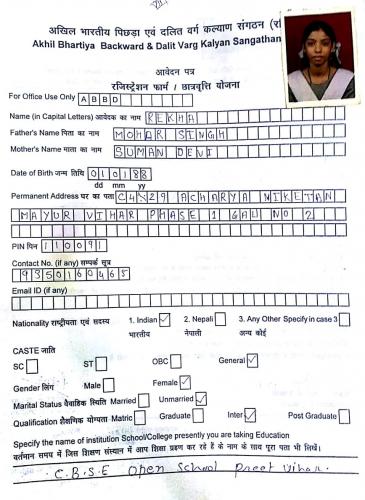 अखिल भारतीय पिछड़ा एवं दलित वर्ग कल्याण संगठन (रजि
Akhil Bhartiya Backward & Dalit Varg Kalyan Sangathan
आवेदन पत्र
रजिस्ट्रेशन फार्म / छात्रवृत्ति योजना
For Office Use Only ABBD
Name (in Capital Letters) आवेदक का नाम REKHA
Father's Name पिता का नाम MOHAR SINGH
Mother's Name माता का नाम SUMAN DEVI
Date of Birth जन्म तिथि 010188
dd mm yy
Permanent Address घर का पता C4 29 ACHARYA NIKETAN
MAYUR VIHAR PHASE 1 GALI NO 2
PIN पिन 110091
Contact No. (if any) सम्पर्क सूत्र
9350160465
Email ID (if any)
Nationality राष्ट्रीयता एवं सदस्य 1. Indian ✓ 2. Nepali 3. Any Other Specify in case 3
भारतीय नेपाली अन्य कोई
CASTE जाति
SC ST OBC General ✓
Gender लिंग Male Female ✓
Marital Status वैवाहिक स्थिति Married Unmarried ✓
Qualification शैक्षणिक योग्यता Matric Graduate Inter ✓ Post Graduate
Specify the name of institution School/College presently you are taking Education
वर्तमान समय में जिस शिक्षण संस्थान में आप शिक्षा ग्रहण कर रहे हैं के नाम के साथ पूरा पता भी लिखें।
C.B.S.E Open School Preet Vihar.